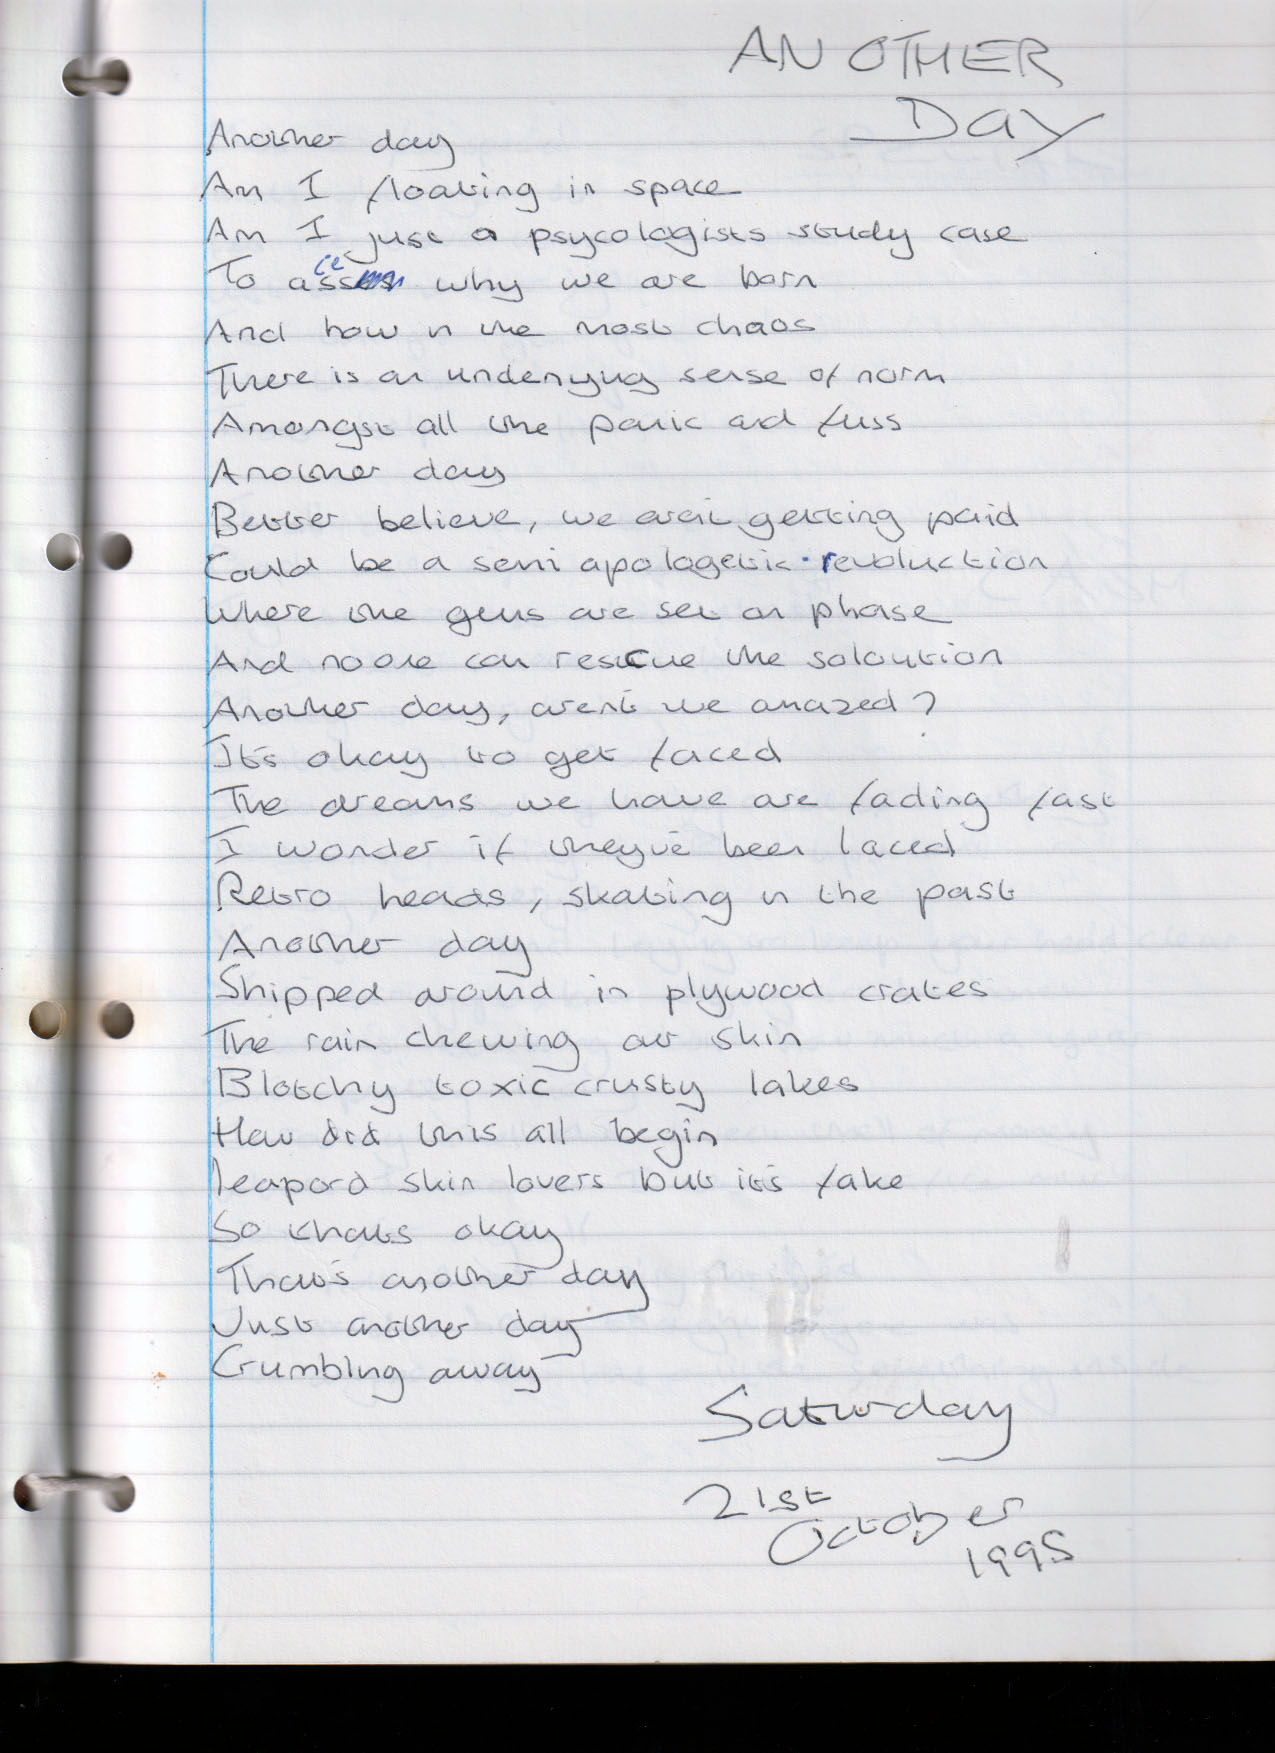 AN OTHER
DAY
Another day
Am I floating in space
Am I just a psycologists study case
To why we are born
And how in the most chaos
There is an undenying sense of norm
Amongst all the panic and fuss
Another day
Better believe, we aren't getting paid
Could be a semi apologetic revoluction
Where the guns are set on phase
And no one can rescue the soloution
Another day, arent we amazed?
It's okay to get faced
The dreams we have are fading fast
I wonder if they've been laced
Retro heads, skating in the past
Another day
Shipped around in plywood crates
The rain chewing our skin
Blotchy toxic crusty lakes
How did this all begin
leapord skin lovers but it's fake
So thats okay
That's another day
Just another day
Crumbling away
Saturday
21st
October
1995